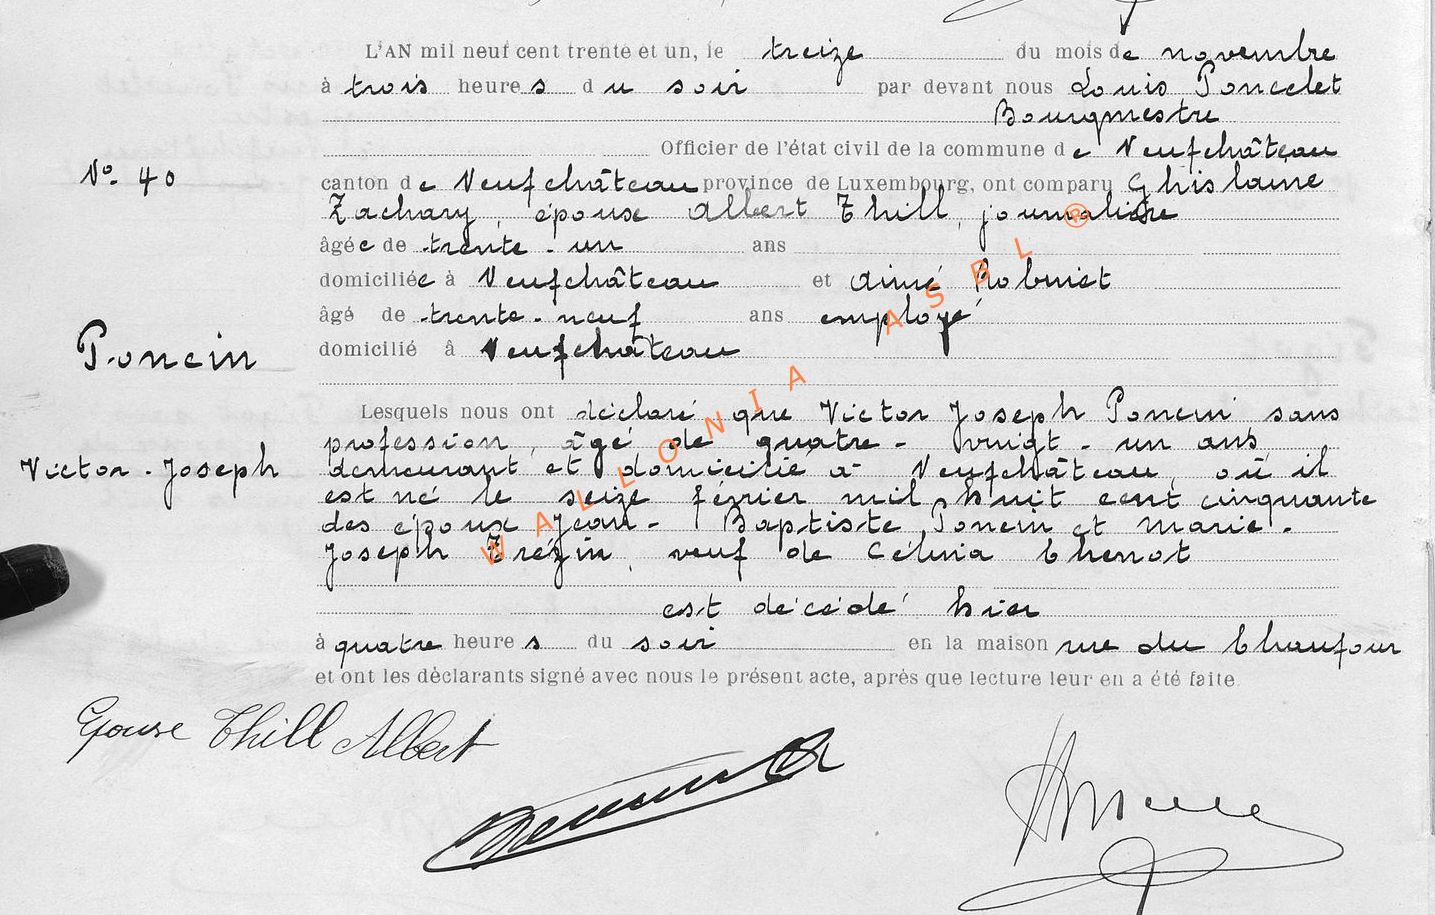 L'AN mil neuf cent trente et un, le treize du mois de novembre
à trois heures du soir par devant nous Louis Poncelet
Bourgmestre
Officier de l'état civil de la commune de Neufchâteau
N° 40
canton de Neufchâteau province de Luxembourg, ont comparu Ghislaine
Zachary, épouse Albert Thill, journaliste
âgée de trente-un ans
domiciliée à Neufchâteau et Aimé Robinet
âgé de trente-neuf ans employé
Poncin
domicilié à Neufchâteau
Lesquels nous ont déclaré que Victor Joseph Poncin sans
profession, âgé de quatre-vingt-un ans
Victor-Joseph
demeurant et domicilié à Neufchâteau, où il
est né le seize février mil huit cent cinquante
des époux Jean-Baptiste Poncin et Marie-
Joseph Trézin, veuf de Célinia Thenot
est décédé hier
à quatre heures du soir en la maison rue du Chaufour
et ont les déclarants signé avec nous le présent acte, après que lecture leur en a été faite.
Epouse Thill Albert
WALLONIA ASBL ®